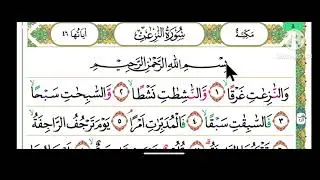 مكية
سورة النازعات
آياتها ٤٦
بسم الله الرحمن الرحيم
وَالنَّٰزِعَٰتِ غَرْقًا ١ وَالنَّٰشِطَٰتِ نَشْطًا ٢ وَالسَّٰبِحَٰتِ سَبْحًا
٣ فَالسَّٰبِقَٰتِ سَبْقًا ٤ فَالْمُدَبِّرَٰتِ أَمْرًا ٥ يَوْمَ تَرْجُفُ الرَّاجِفَةُ